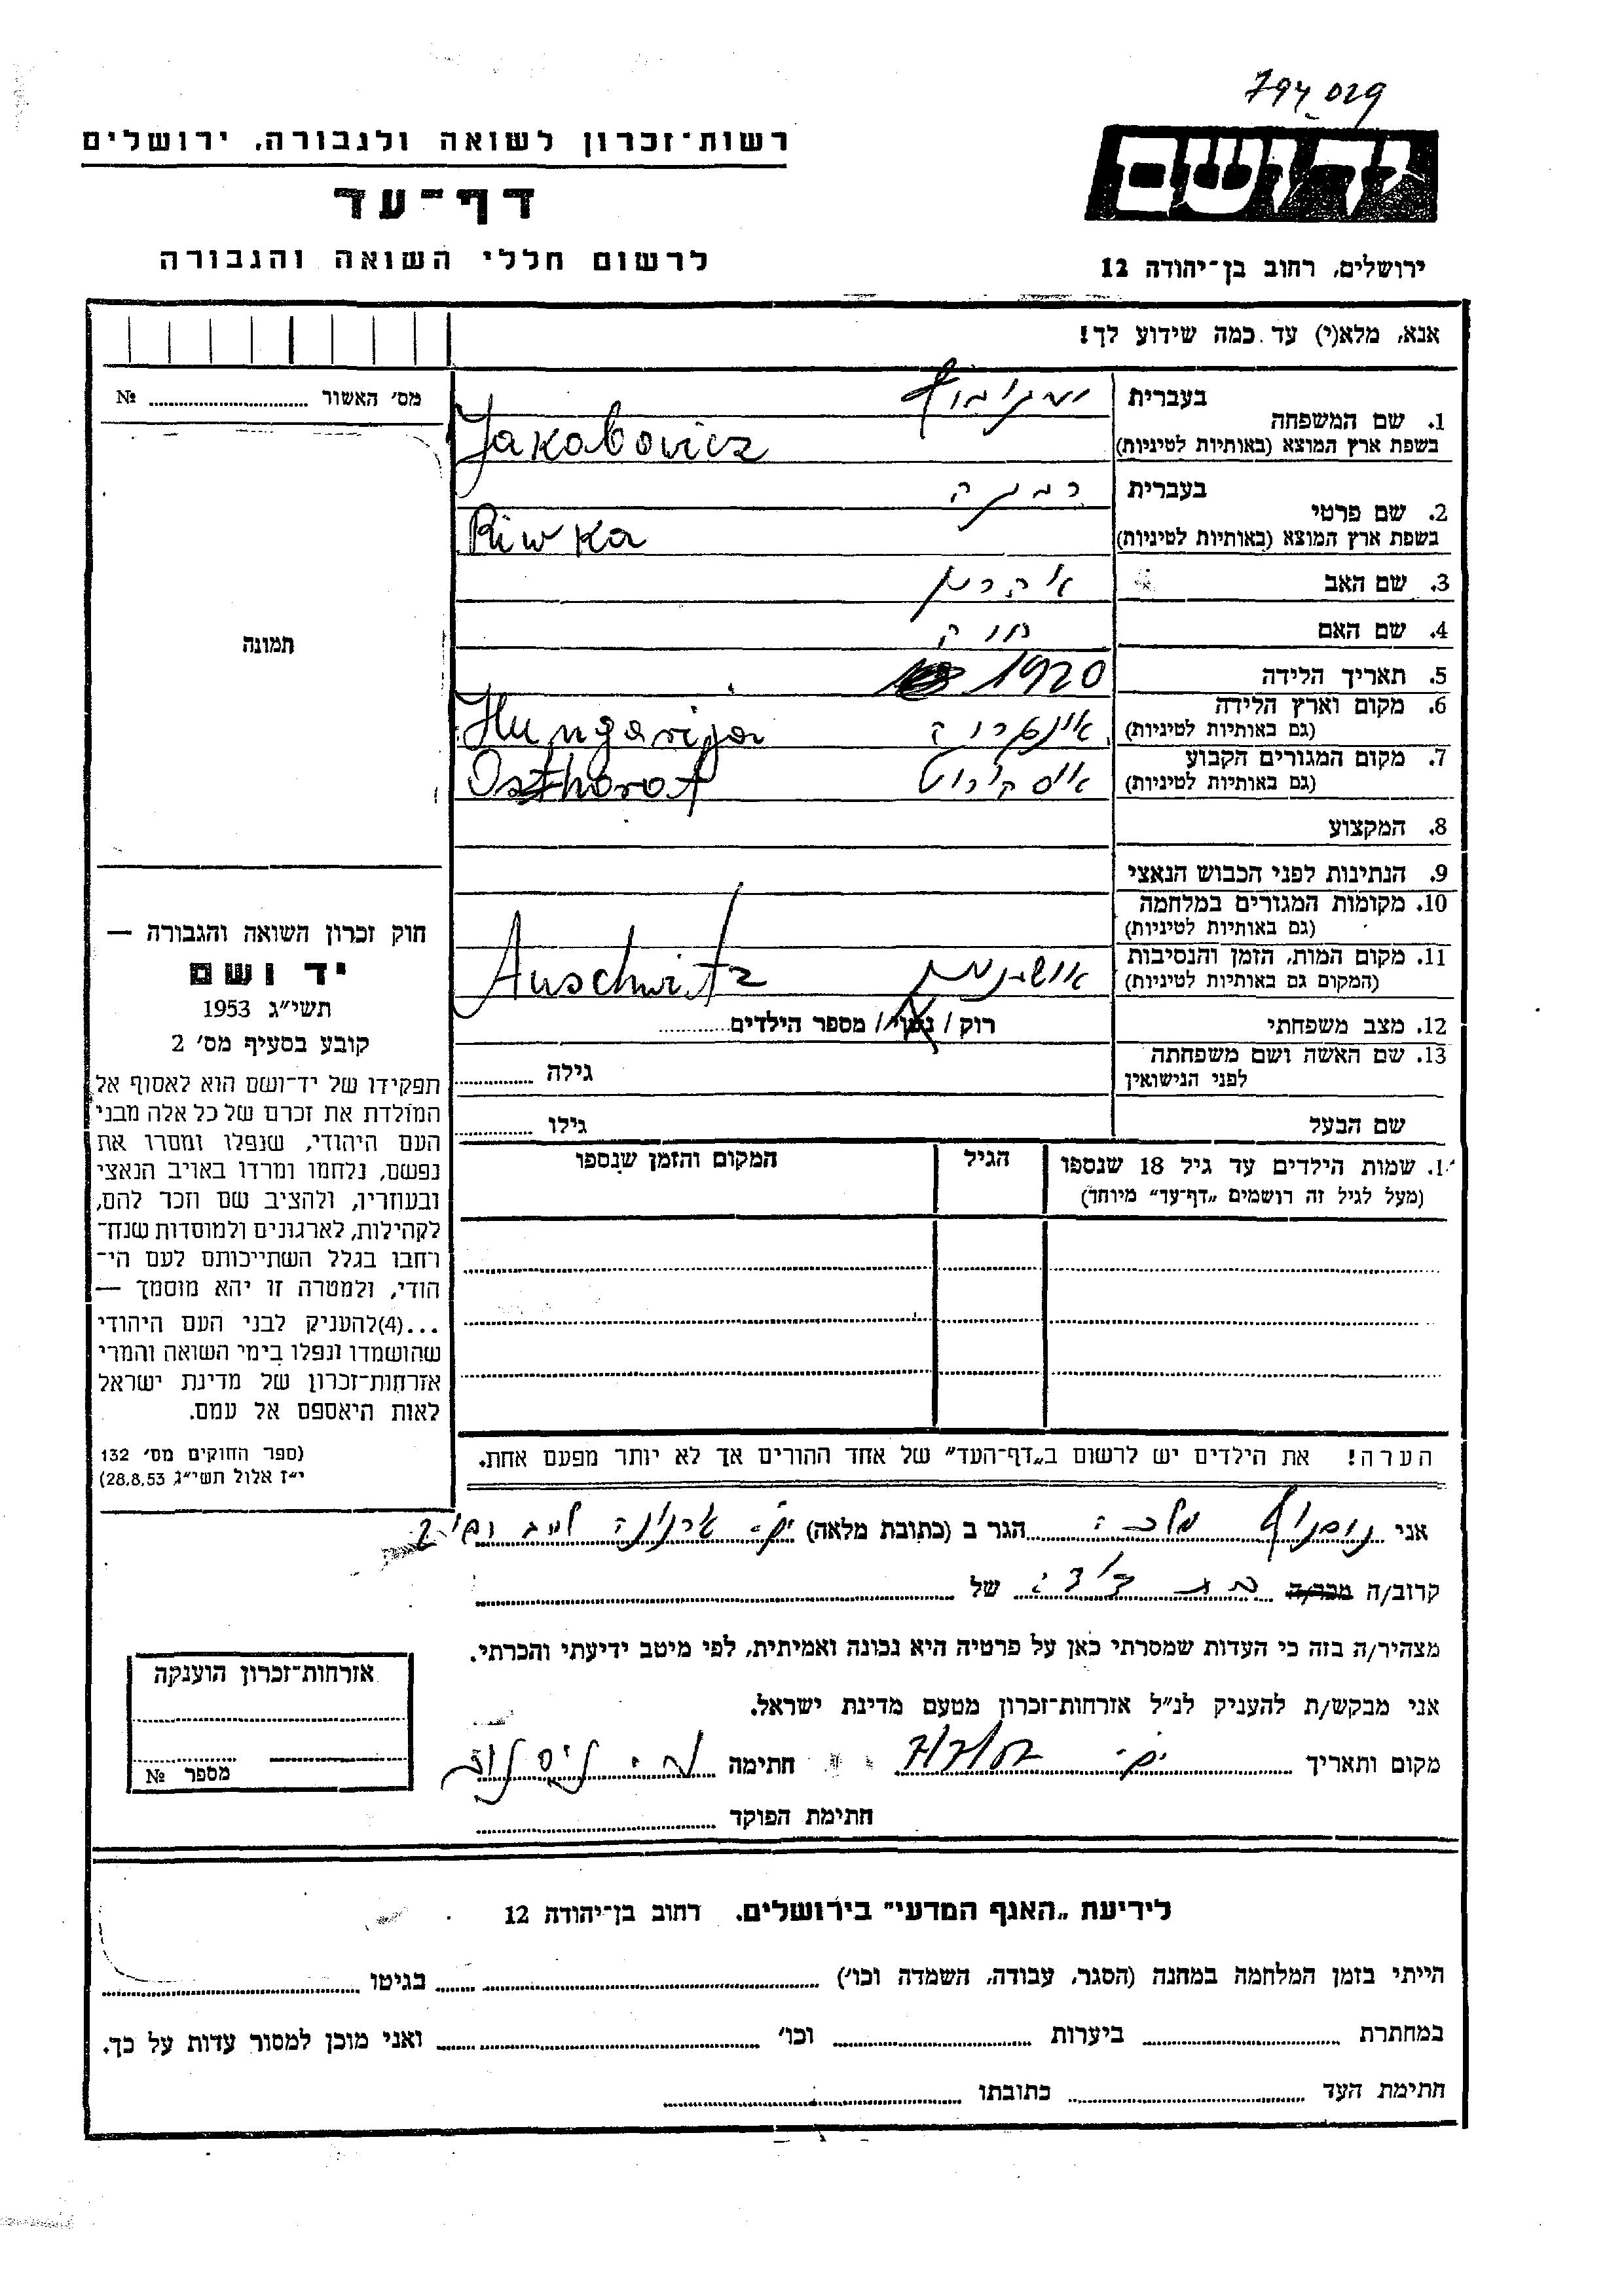 794029
רשות־זכרון לשואה ולגבורה, ירושלים
דף־עד
לרשום חללי השואה והגבורה
יד ושם
ירושלים, רחוב בן־יהודה 12
אנא, מלא(י) עד כמה שידוע לך!
מס׳ האשור № 
1. שם המשפחה
בעברית
בשפת ארץ המוצא (באותיות לטיניות) Jakabovicz
2. שם פרטי
בעברית רבקה
בשפת ארץ המוצא (באותיות לטיניות) Riwka
3. שם האב
4. שם האם
5. תאריך הלידה 1920
6. מקום וארץ הלידה
(גם באותיות לטיניות) Hungarija
7. מקום המגורים הקבוע
(גם באותיות לטיניות)
8. המקצוע
9. הנתינות לפני הכבוש הנאצי
10. מקומות המגורים במלחמה
(גם באותיות לטיניות)
11. מקום המות, הזמן והנסיבות
(המקום גם באותיות לטיניות) Auschwitz
12. מצב משפחתי רוק / נשוי / מספר הילדים
13. שם האשה ושם משפחתה
לפני הנישואין גילה
שם הבעל גילו
שמות הילדים עד גיל 18 שנספו הגיל המקום והזמן שנספו
(מעל לגיל זה רושמים „דף־עד״ מיוחד)
הערה! את הילדים יש לרשום ב„דף־העד״ של אחד ההורים אך לא יותר מפעם אחת.
תמונה
חוק זכרון השואה והגבורה —
יד ושם
תשי״ג 1953
קובע בסעיף מס׳ 2
תפקידו של יד־ושם הוא לאסוף אל
המולדת את זכרם של כל אלה מבני
העם היהודי, שנפלו ומסרו את
נפשם, נלחמו ומרדו באויב הנאצי
ובעוזריו, ולהציב שם וזכר להם,
לקהילות, לארגונים ולמוסדות שנח־
רחבו בגלל השתייכותם לעם הי־
הודי, ולמטרה זו יהא מוסמך —
...(4)להעניק לבני העם היהודי
שהושמדו ונפלו בימי השואה והמרי
אזרחות־זכרון של מדינת ישראל
לאות היאספם אל עמם.
(ספר החוקים מס׳ 132
י״ז אלול תשי״ג 28.8.53)
אני מלכה הגר ב (כתובת מלאה)
קרוב/ה מכר/ה של
מצהיר/ה בזה כי העדות שמסרתי כאן על פרטיה היא נכונה ואמיתית, לפי מיטב ידיעתי והכרתי.
אני מבקש/ת להעניק לנ״ל אזרחות־זכרון מטעם מדינת ישראל.
מקום ותאריך חתימה
חתימת הפוקד
אזרחות־זכרון הוענקה
מספר №
לידיעת „האגף המדעי״ בירושלים, רחוב בן־יהודה 12
הייתי בזמן המלחמה במחנה (הסגר, עבודה, השמדה וכו׳) בגיטו
במחתרת ביערות וכו׳ ואני מוכן למסור עדות על כך.
חתימת העד כתובתו